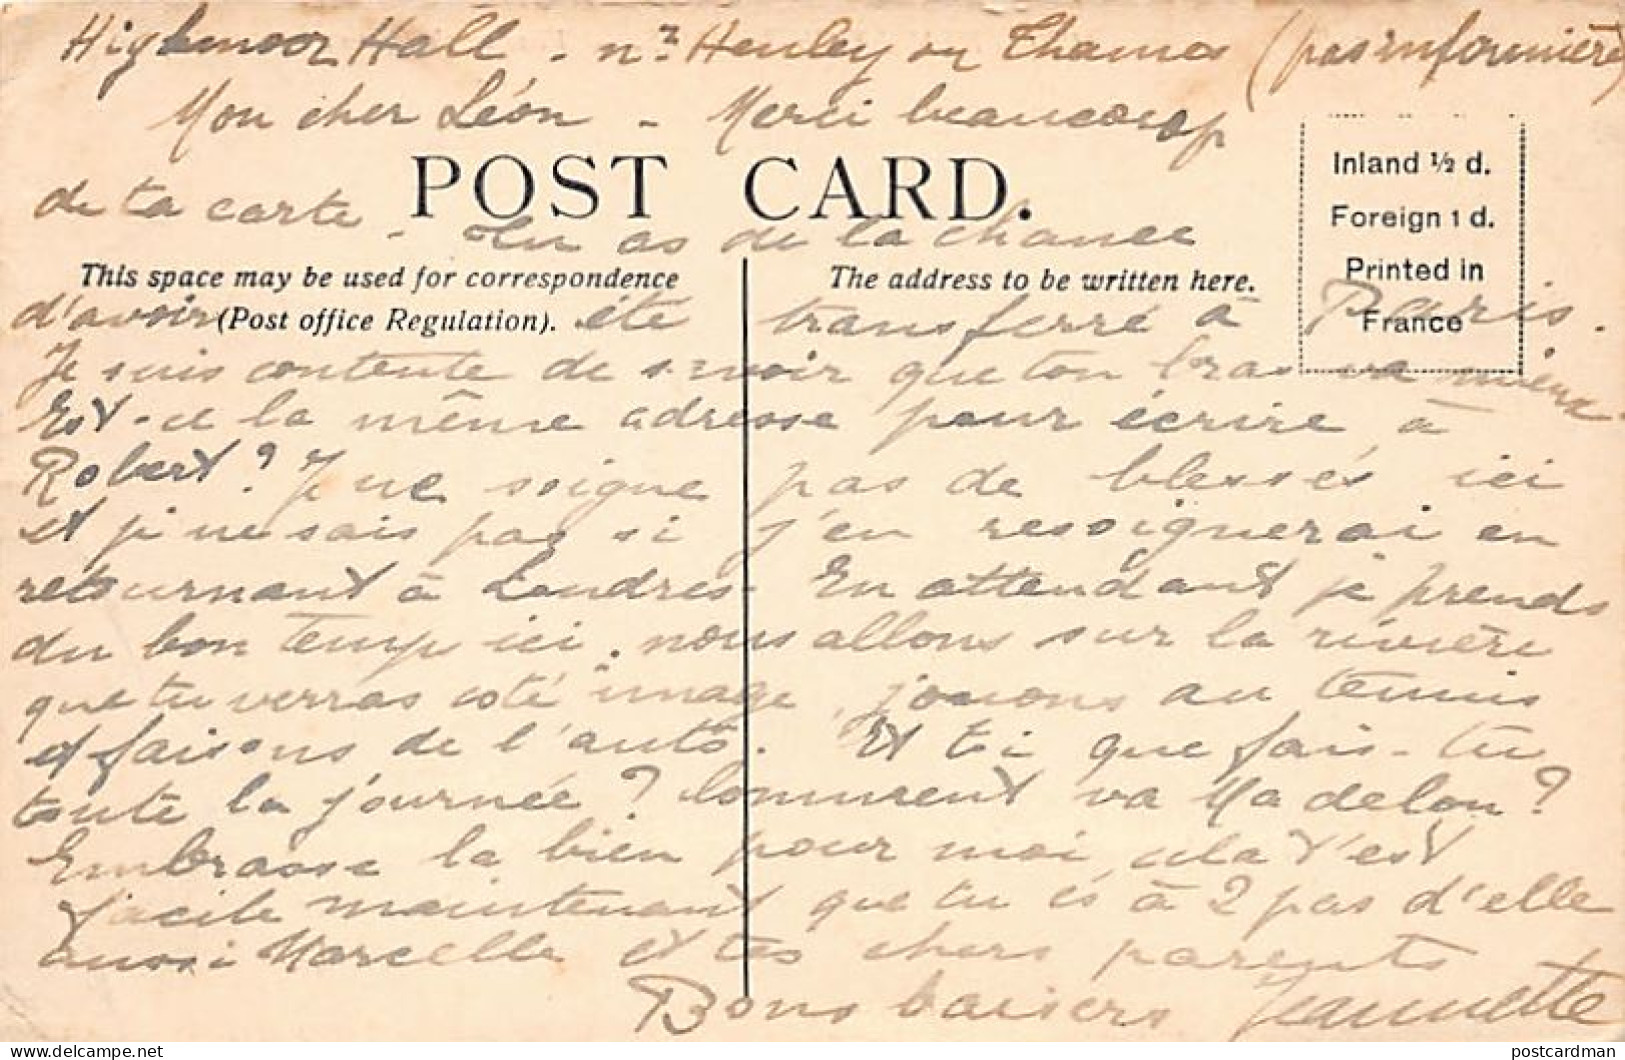 Highmoor Hall - nr Henley on Thames (pas infirmière)
Mon cher Léon - Merci beaucoup
POST CARD.
de ta carte - Tu as de la chance
This space may be used for correspondence
(Post office Regulation).
The address to be written here.
Inland ½ d.
Foreign 1 d.
Printed in
France
d'avoir été transferré à Paris.
Je suis contente de savoir que ton bras va mieux.
Est-ce la même adresse pour écrire à
Robert? Je ne soigne pas de blessés ici
et je ne sais pas si j'en resoignerai en
retournant à Londres. En attendant je prends
du bon temps ici. nous allons sur la rivière
que tu verras coté image, jouons au tennis
et faisons de l'auto. Et toi que fais-tu
toute la journée? Comment va Madelon?
Embrasse la bien pour moi, cela t'est
facile maintenant que tu es à 2 pas d'elle
aussi Marcelle et tes chers parents
Bons baisers Jeannette
postcardman